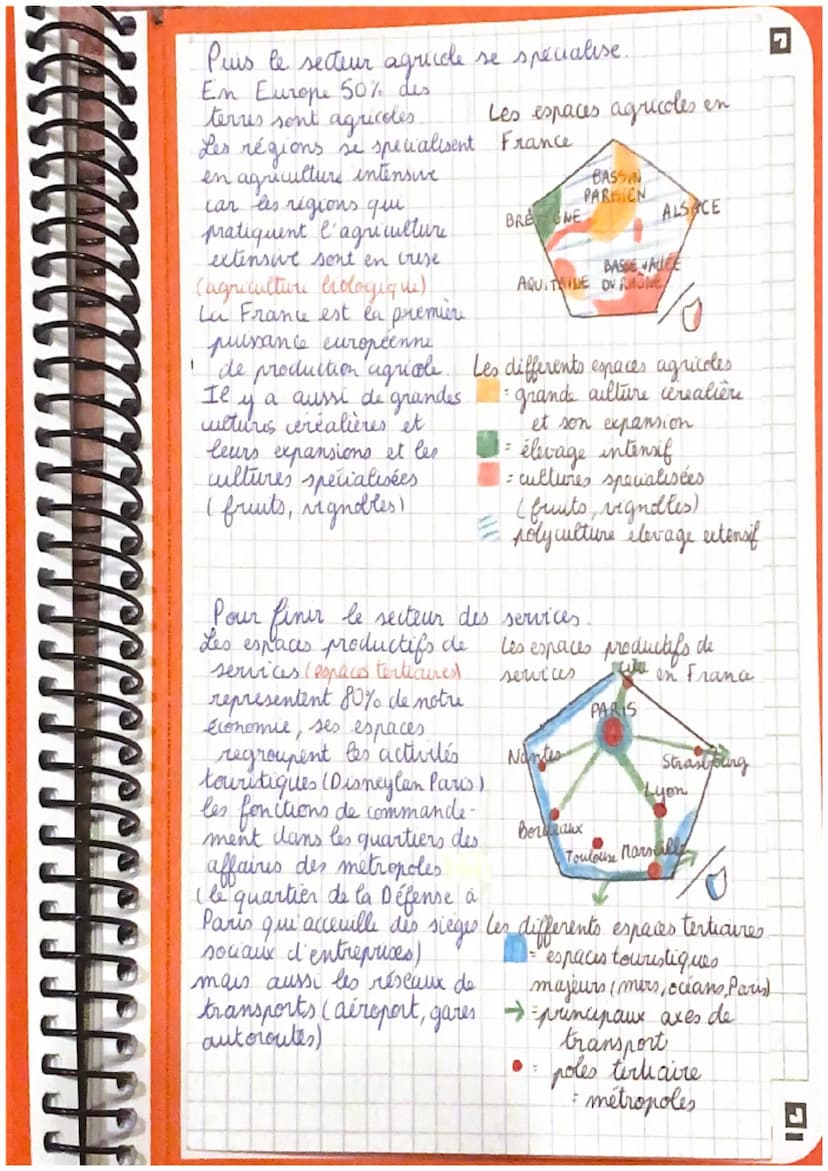 Puis le secteur agricole se spécialise.
En Europe 50% des
terres sont agricoles.
Les régions se spécialisent
en agriculture intensive
car les régions qui
pratiquent l'agriculture
extensive sont en crise
(agriculture biologique)
La France est la première
puissance européenne
de production agricole.
Il y a aussi de grandes
cultures céréalières et
leurs expansions et les
cultures spécialisées
(fruits, vignobles)
Les espaces agricoles en
France
BASSIN
PARISIEN
BRETAGNE
ALSACE
BASSE VALLÉE
AQUITAINE DU RHÔNE
Les differents espaces agricoles
= grande culture céréalière
et son expansion
= élevage intensif
= cultures specialisées
(fruits, vignobles)
polyculture élevage extensif
Pour finir le secteur des services.
Les espaces productifs de
services (espaces tertiaires)
représentent 80% de notre
économie, ses espaces
regroupent les activités
touristiques (Disneylan Paris)
les fonctions de commande-
ment dans les quartiers des
affaires des métropoles
(le quartier de la Défense à
Paris qui acceuille des sièges
sociaux d'entreprises)
mais aussi les réseaux de
transports (aéroport, gares
autoroutes)
Les espaces productifs de
services en France
PARIS
Nantes
Strasbourg
Lyon
Bordeaux
Toulouse Marseille
Les differents espaces tertiaires
= espaces touristiques
majeurs (mers, océans, Paris)
→ = principaux axes de
transport
= poles tertiaire
= métropoles